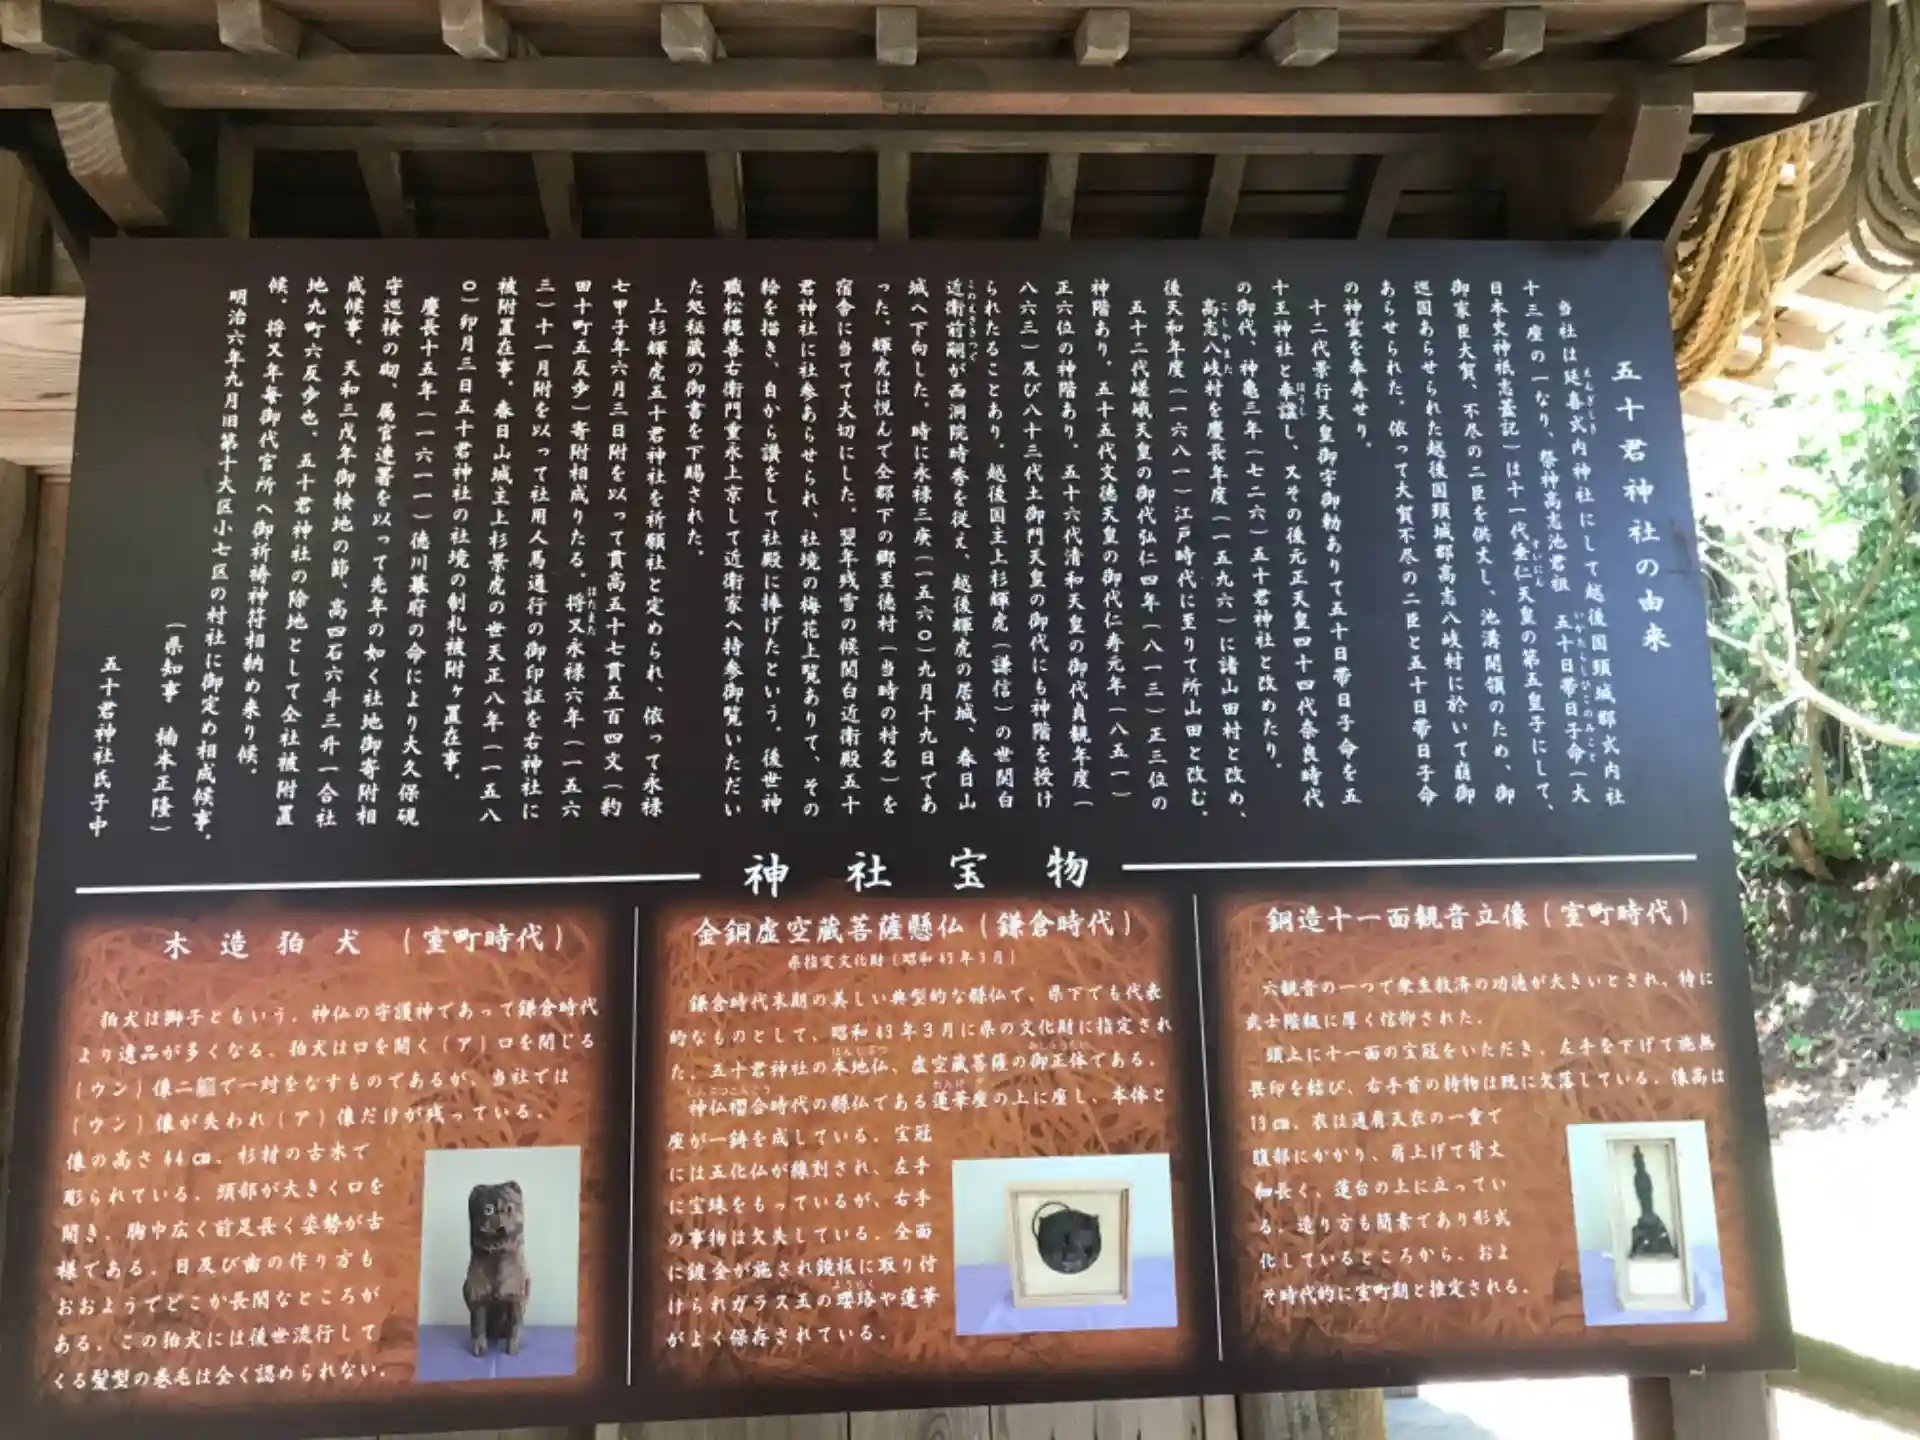 五十君神社の由来
当社は延喜式内神社にして越後国頸城郡式内社
えんぎしき
十三座の一なり、祭神高志池君祖 五十日帯日子命(大
いかたらしひこのみこと
日本史神祇志蓋記)は十一代垂仁天皇の第五皇子にして、
すいにん
御家臣大賀、不尽の二臣を供丈し、池溝開領のため、御
巡国あらせられた越後国頸城郡高志八岐村に於いて崩御
あらせられた。依って大賀不尽の二臣と五十日帯日子命
の神霊を奉寿せり。
十二代景行天皇御宇御勅ありて五十日帯日子命を五
十王神社と奉諡し、又その後元正天皇四十四代奈良時代
ほうし
の御代、神亀三年(七二六)五十君神社と改めたり。
高志八岐村を慶長年度(一五九六)に諸山田村と改め、
こしやまた
後天和年度(一六八一)江戸時代に至りて所山田と改む。
五十二代嵯峨天皇の御代弘仁四年(八一三)正三位の
神階あり。五十五代文徳天皇の御代仁寿元年(八五一)
正六位の神階あり。五十六代清和天皇の御代貞観年度(
八六三)及び八十三代土御門天皇の御代にも神階を授け
られたることあり。越後国主上杉輝虎(謙信)の世関白
近衛前嗣が西洞院時秀を従え、越後輝虎の居城、春日山
このえさきつぐ
城へ下向した。時に永禄三庚(一五六〇)九月十九日であ
った。輝虎は悦んで全郡下の郷至徳村(当時の村名)を
宿舎に当てて大切にした。翌年残雪の候関白近衛殿五十
君神社に社参あらせられ、社境の梅花上覧ありて、その
絵を描き、自から讃をして社殿に捧げたという。後世神
職松縄善右衛門重永上京して近衛家へ持参御覧いただい
た処秘蔵の御書を下賜された。
上杉輝虎五十君神社を祈願社と定められ、依って永禄
七甲子年六月三日附を以って貫高五十七貫五百四文(約
田十町五反歩)寄附相成りたる。将又永禄六年(一五六
はたまた
三)十一月附を以って社用人馬通行の御印証を右神社に
被附置在事。春日山城主上杉景虎の世天正八年(一五八
〇)卯月三日五十君神社の社境の制札被附ヶ置在事。
慶長十五年(一六一一)徳川幕府の命により大久保硯
守巡検の砌、属官連署を以って先年の如く社地御寄附相
成候事。天和三戊年御検地の節、高四石六斗三升一合社
地九町六反歩也、五十君神社の除地として全社被附置
候。将又年毎御代官所へ御祈祷神符相納め来り候。
明治六年九月旧第十大区小七区の村社に御定め相成候事。
(県知事 楠本正隆)
五十君神社氏子中
神社宝物
木造狛犬 (室町時代)
狛犬は獅子ともいう。神仏の守護神であって鎌倉時代
より遺品が多くなる。狛犬は口を開く(ア)口を閉じる
(ウン)像二軀で一対をなすものであるが、当社では
(ウン)像が失われ(ア)像だけが残っている。
像の高さ44㎝、杉材の古木で
彫られている。頭部が大きく口を
開き、胸巾広く前足長く姿勢が古
様である。目及び歯の作り方も
おおようでどこか長閑なところが
ある。この狛犬には後世流行して
くる髪型の巻毛は全く認められない。
金銅虚空蔵菩薩懸仏(鎌倉時代)
県指定文化財(昭和43年3月)
鎌倉時代末期の美しい典型的な懸仏で、県下でも代表
的なものとして、昭和43年3月に県の文化財に指定され
た。五十君神社の本地仏、虚空蔵菩薩の御正体である。
ほんじぶつ
みしょうたい
神仏褶合時代の懸仏である蓮華座の上に座し、本体と
しんぶつこんごう
れんげ
座が一鋳を成している。宝冠
には五化仏が線刻され、左手
に宝珠をもっているが、右手
の事物は欠失している。全面
に鍍金が施され鏡板に取り付
けられガラス玉の瓔珞や蓮華
ようらく
がよく保存されている。
銅造十一面観音立像(室町時代)
六観音の一つで衆生救済の功徳が大きいとされ、特に
武士階級に厚く信仰された。
頭上に十一面の宝冠をいただき、左手を下げて施無
畏印を結び、右手首の持物は既に欠落している。像高は
13㎝、衣は通肩天衣の一重で
腹部にかかり、肩上げて背丈
細長く、蓮台の上に立ってい
る。造り方も簡素であり形式
化しているところから、およ
そ時代的に室町期と推定される。